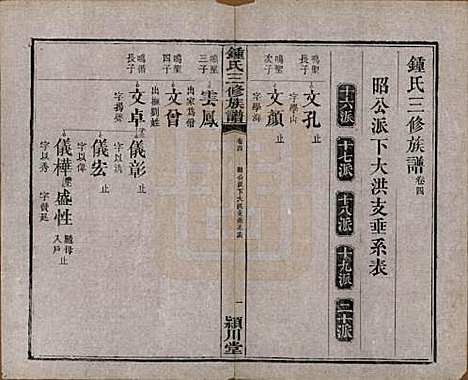 鍾氏三修族譜 卷四
昭公派下大洪支垂系表
十六派 十七派 十八派 十九派 二十派
鳴聖次子 文孔 止 字學山
文顏 止 字學海
鳴聖三子 雲鳳 出家爲僧
鳴聖四子 文曾 止 出撫劉姓
鍾氏三修族譜
卷四 昭公派下大洪支垂系表 一
潁川堂
鳴循長子 文卓 字揚菊
儀彰 止
儀宏 止 字以偉
儀樺 字以秀
盛性 止 隨母入戶 字載延